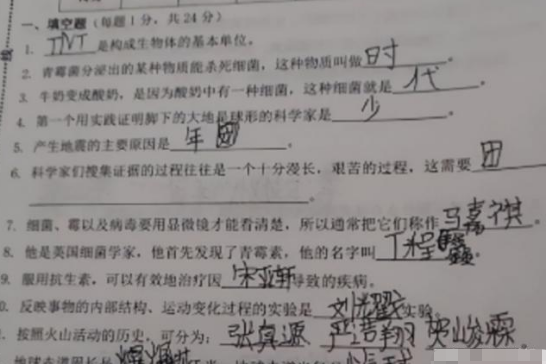 一、填空题（每题1分，共24分）
1. TNT 是构成生物体的基本单位。
2. 青霉菌分泌出的某种物质能杀死细菌，这种物质叫做 时 。
3. 牛奶变成酸奶，是因为酸奶中有一种细菌，这种细菌就是 代 。
4. 第一个用实践证明脚下的大地是球形的科学家是 少 。
5. 产生地震的主要原因是 年团 。
6. 科学家们搜集证据的过程往往是一个十分漫长，艰苦的过程，这需要 团
。
7. 细菌、霉以及病毒要用显微镜才能看清楚，所以通常把它们称作 马嘉祺 。
8. 他是英国细菌学家，他首先发现了青霉素，他的名字叫 丁程鑫 。
9. 服用抗生素，可以有效地治疗因 宋亚轩 导致的疾病。
0. 反映事物的内部结构、运动变化过程的实验是 刘耀 实验。
按照火山活动的历史，可分为： 张真源 严浩翔 贺峻霖
地球赤道周长是